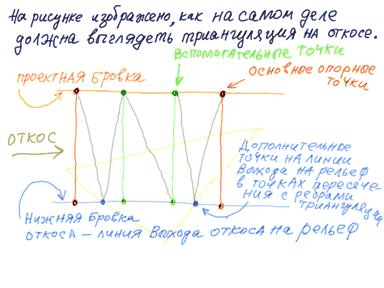 На рисунке изображено, как на самом деле
должна выглядеть триангуляция на откосе.
Вспомогательные точки
проектная бровка
Основные опорные
точки
откос
Дополнительные
точки на линии
выхода на рельеф
в точках пересече
ния с рёбрами
триангуляции
Нижняя бровка
откоса – линия выхода откоса на рельеф